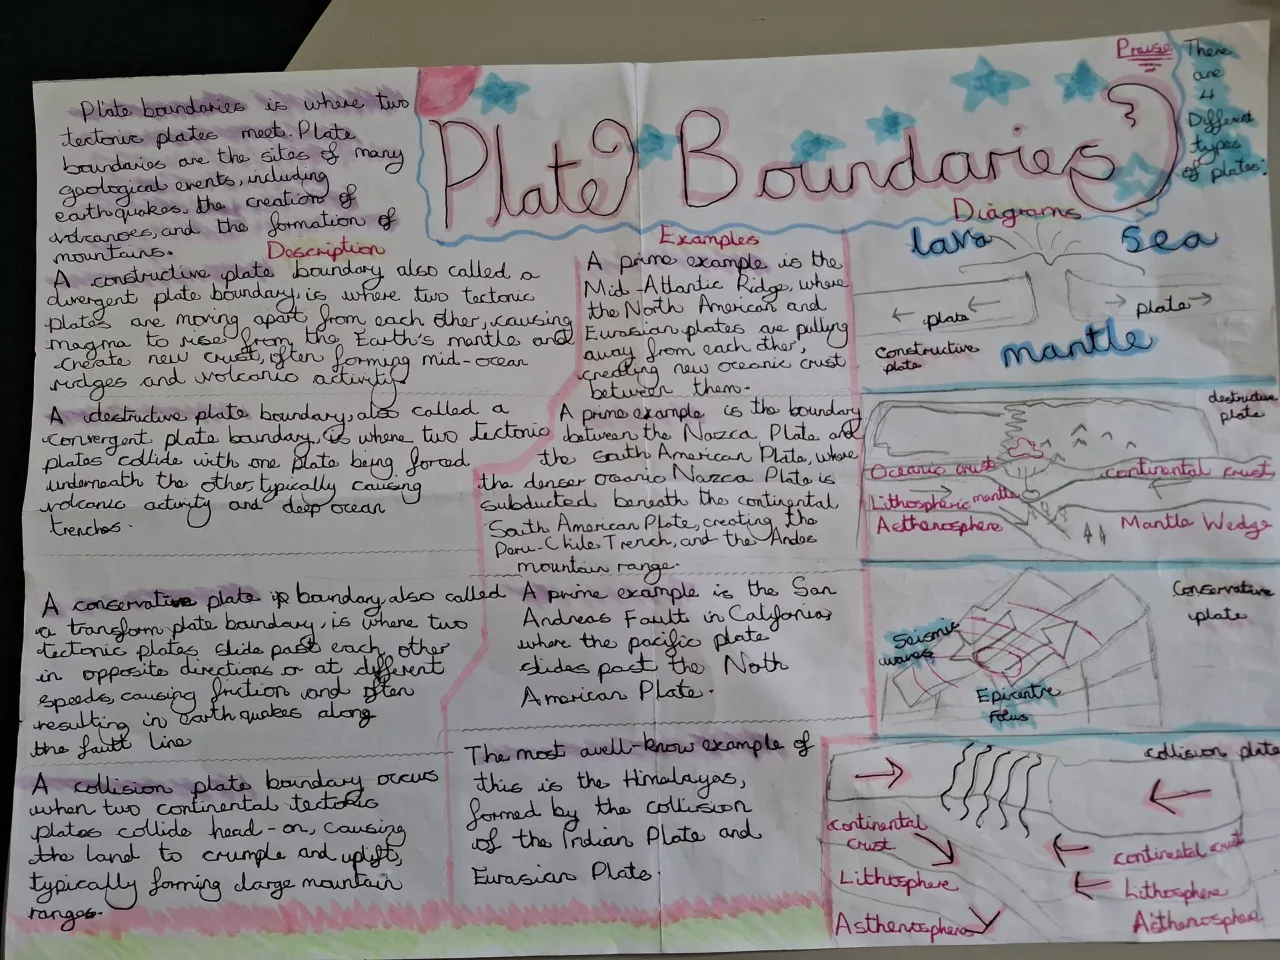 Plate boundaries is where two
tectonic plates meet. Plate
boundaries are the sites of many
geological events, including
earthquakes, the creation of
volcanoes, and the formation of
mountains.
Plate Boundaries
Praise
There
are
4
Different
types
of plates:
Description
A constructive plate boundary also called a
divergent plate boundary, is where two tectonic
plates are moving apart from each other, causing
magma to rise from the Earth's mantle and
create new crust, often forming mid-ocean
ridges and volcanic activity
A destructive plate boundary, also called a
convergent plate boundary, is where two tectonic
plates collide with one plate being forced
underneath the other, typically causing
volcanic activity and deep ocean
trenches.
A conservative plate boundary, also called
a transform plate boundary, is where two
tectonic plates slide past each other
in opposite directions or at different
speeds, causing friction and often
resulting in earthquakes along
the fault line
A collision plate boundary occurs
when two continental tectonic
plates collide head-on, causing
the land to crumple and uplift,
typically forming large mountain
ranges.
Examples
A prime example is the
Mid-Atlantic Ridge, where
the North American and
Eurasian plates are pulling
away from each other,
creating new oceanic crust
between them.
A prime example is the boundary
between the Nazca Plate and
the South American Plate, where
the denser oceanic Nazca Plate is
subducted beneath the continental
South American Plate, creating the
Peru-Chile Trench, and the Andes
mountain range.
A prime example is the San
Andreas Fault in California,
where the pacific plate
slides past the North
American Plate.
The most well-know example of
this is the Himalayas,
formed by the collision
of the Indian Plate and
Eurasian Plate.
Diagrams
lava
Sea
plate
plate
Constructive
plate
mantle
destructive
plate
Oceanic crust
continental crust
Lithospheric mantle
Asthenosphere
Mantle Wedge
Conservative
plate
Seismic
waves
Epicentre
Focus
collision plate
continental
crust
continental crust
Lithosphere
Lithosphere
Asthenosphere
Asthenosphere